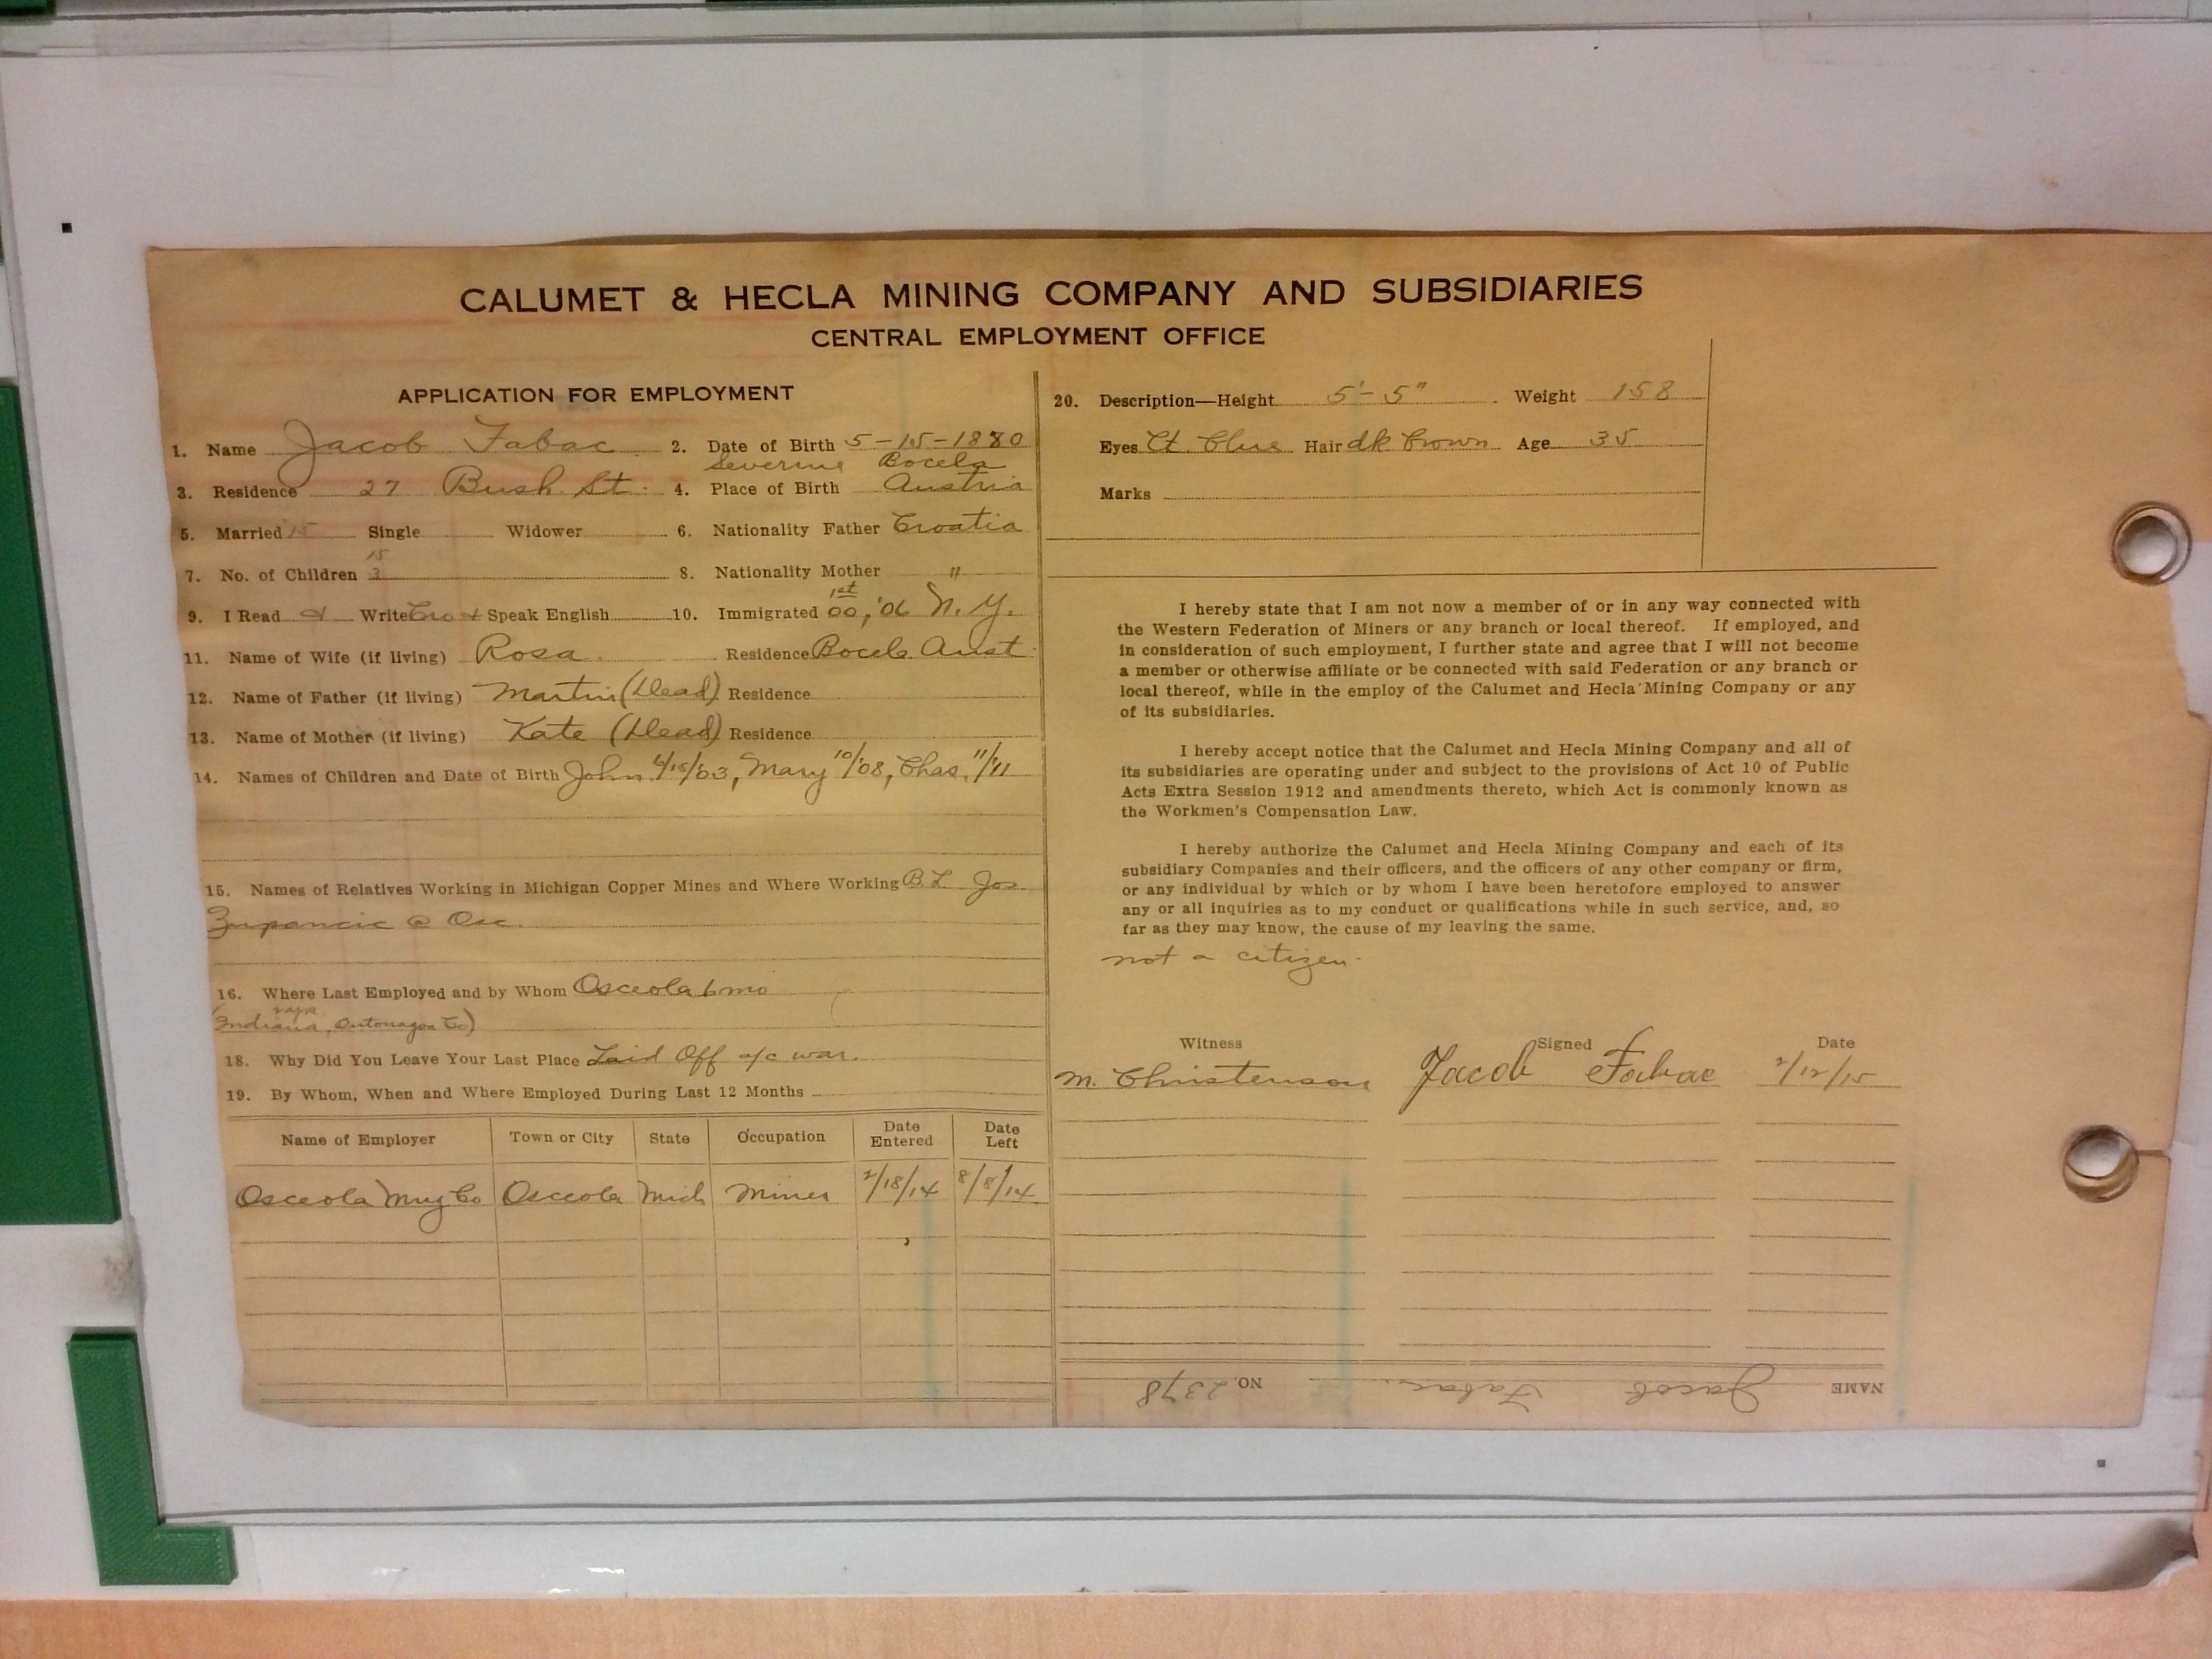 CALUMET & HECLA MINING COMPANY AND SUBSIDIARIES
CENTRAL EMPLOYMENT OFFICE
APPLICATION FOR EMPLOYMENT
1. Name Jacob Fabac 2. Date of Birth 5-15-1880
Severine Bocela
3. Residence 27 Bush St. 4. Place of Birth Austria
5. Married 15 Single Widower 6. Nationality Father Croatia
15
7. No. of Children 3 8. Nationality Mother "
1st
9. I Read & Write Cro & Speak English 10. Immigrated 00, '06 N.Y.
11. Name of Wife (if living) Rosa Residence Bocela Aust
12. Name of Father (if living) Martin (Dead) Residence
13. Name of Mother (if living) Kate (Dead) Residence
14. Names of Children and Date of Birth John 6/15/03, Mary 10/08, Chas. 11/11
15. Names of Relatives Working in Michigan Copper Mines and Where Working B.L. Jos
Zupancic @ Osc.
16. Where Last Employed and by Whom Osceola 6 mo
(Indiana, Ontonagon Co)
18. Why Did You Leave Your Last Place Laid Off a/c war.
19. By Whom, When and Where Employed During Last 12 Months
Name of Employer Town or City State Occupation Date Entered Date Left
Osceola Mng Co Osceola Mich Miner 2/18/14 8/8/14
20. Description—Height 5'-5" Weight 158
Eyes Lt. Blue Hair dk Brown Age 35
Marks
I hereby state that I am not now a member of or in any way connected with
the Western Federation of Miners or any branch or local thereof. If employed, and
in consideration of such employment, I further state and agree that I will not become
a member or otherwise affiliate or be connected with said Federation or any branch or
local thereof, while in the employ of the Calumet and Hecla Mining Company or any
of its subsidiaries.
I hereby accept notice that the Calumet and Hecla Mining Company and all of
its subsidiaries are operating under and subject to the provisions of Act 10 of Public
Acts Extra Session 1912 and amendments thereto, which Act is commonly known as
the Workmen's Compensation Law.
I hereby authorize the Calumet and Hecla Mining Company and each of its
subsidiary Companies and their officers, and the officers of any other company or firm,
or any individual by which or by whom I have been heretofore employed to answer
any or all inquiries as to my conduct or qualifications while in such service, and, so
far as they may know, the cause of my leaving the same.
not a citizen.
Witness Signed Date
M. Christenson Jacob Fabac 2/12/15
NAME Jacob Fabac NO. 2378